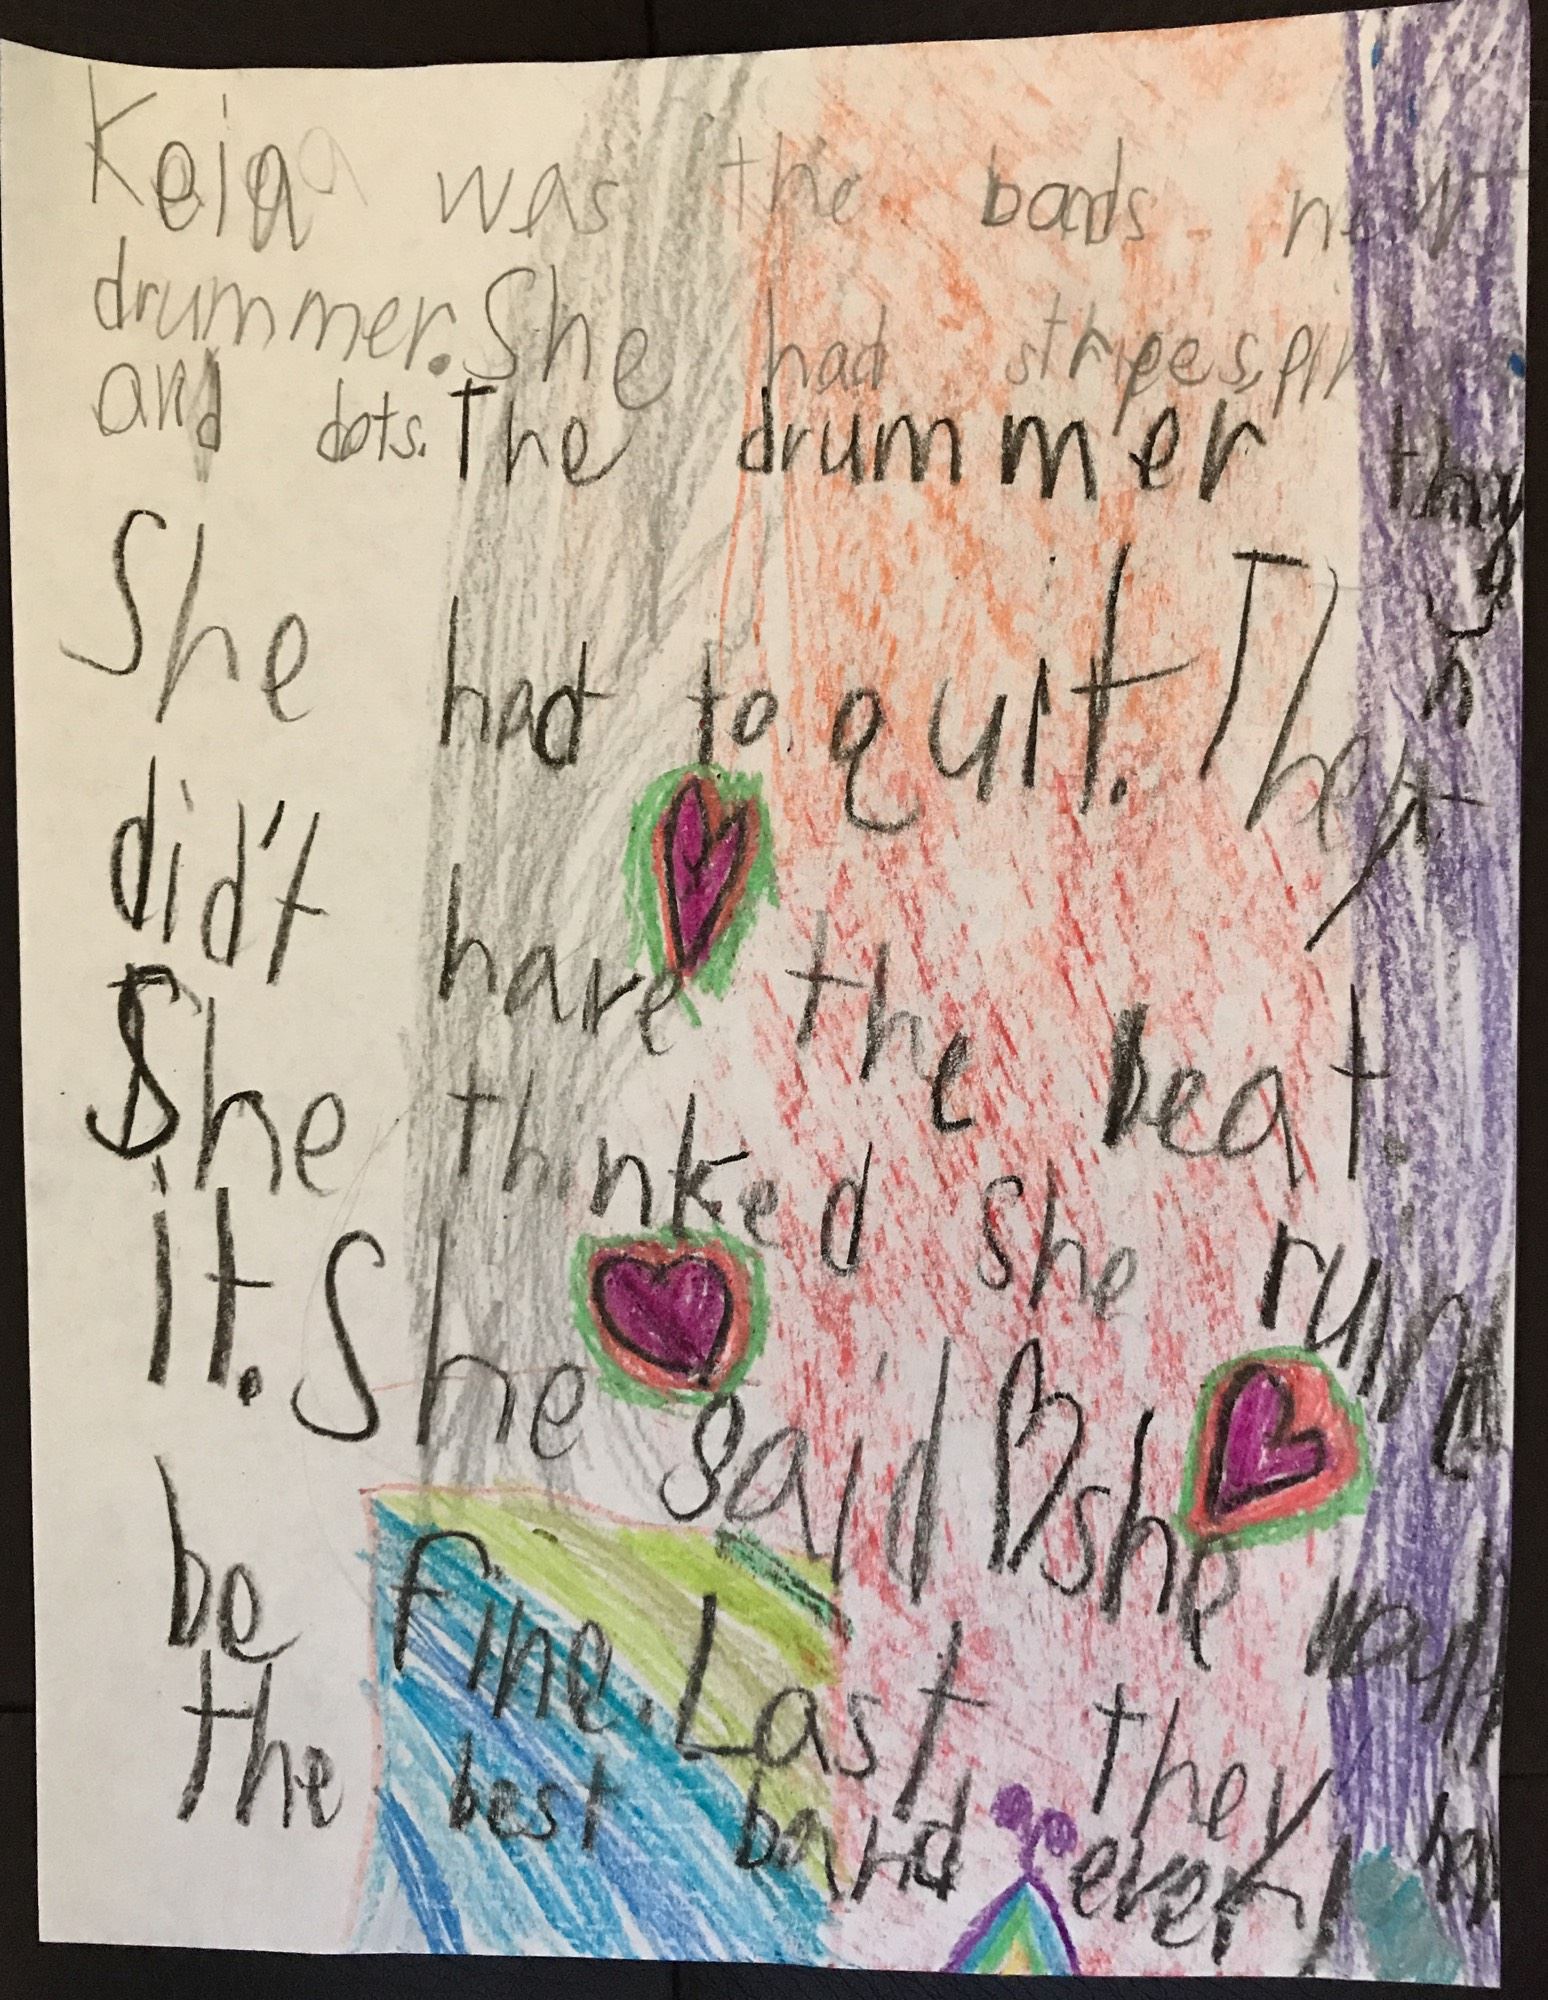 Keia was the bands new
drummer. She had stripes,
and dots. The drummer
She had to quit. They
did't have the beat.
She thinked she
it. She said she would
be fine. Last, they
the best band ever!